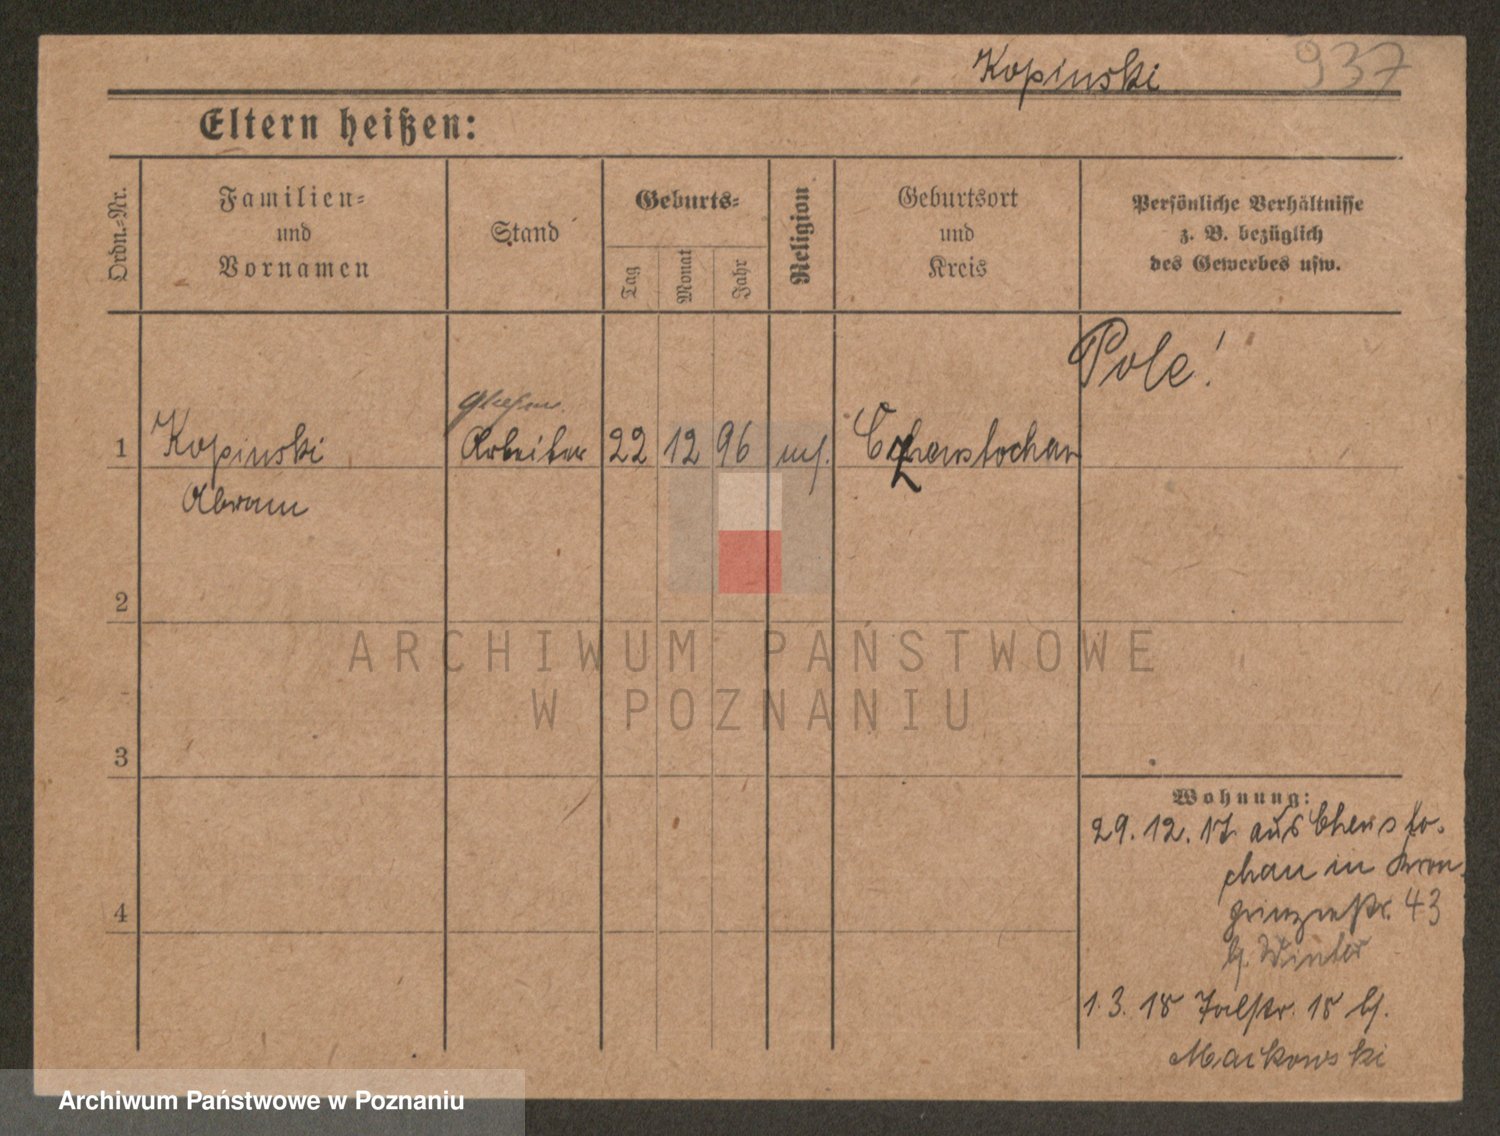 Kopinski 937
Eltern heißen:
Ordn.-Nr.
Familien-
und
Vornamen
Stand
Geburts-
Tag
Monat
Jahr
Religion
Geburtsort
und
Kreis
Persönliche Verhältnisse
z. B. bezüglich
des Gewerbes usw.
Pole!
1 Kopinski Arbeiter 22 12 96 Czenstochau
Abram
2
3
4
Wohnung:
29.12.17 aus Chensto-
chau in Kron-
prinzenstr. 43
b. Winter
1.3.18 Talstr. 18 b.
Maikowski
ARCHIWUM PAŃSTWOWE
W POZNANIU
Archiwum Państwowe w Poznaniu